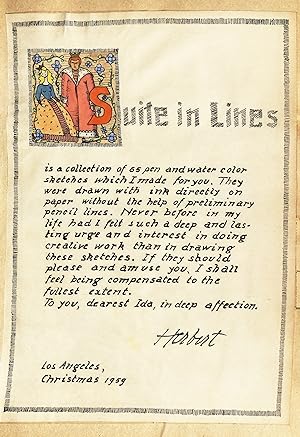 Suite in Lines
is a collection of 65 pen and water color
sketches which I made for you. They
were drawn with ink directly on
paper without the help of preliminary
pencil lines. Never before in my
life had I felt such a deep and las-
ting urge and interest in doing
creative work than in drawing
these sketches. If they should
please and amuse you, I shall
feel being compensated to the
fullest extent.
To you, dearest Ida, in deep affection.
Herbert
Los Angeles,
Christmas 1959